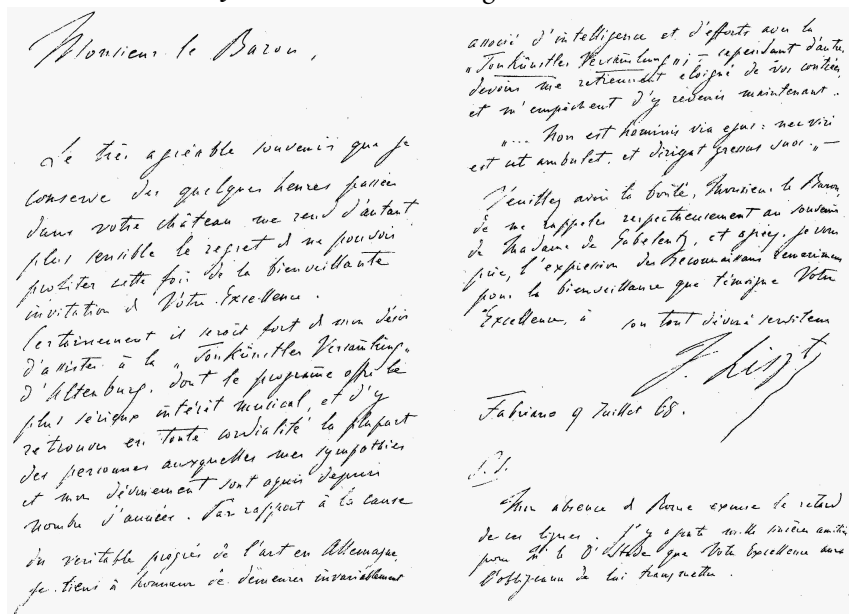 Monsieur le Baron,
Le très agréable souvenir que je
conserve des quelques heures passées
dans votre château me rend d'autant
plus sensible le regret de ne pouvoir
profiter cette fois de la bienveillante
invitation de Votre Excellence.
Certainement il seroit fort de mon désir
d'assister à la „Tonkünstler Versamlung"
d'Altenburg, dont le programe offre le
plus sérieux intérêt musical, et d'y
retrouver en toute cordialité la plupart
des personnes auxquelles mes sympathies
et mon dévouement sont acquis depuis
nombre d'années. Par rapport à la cause
du veritable progrès de l'art en Allemagne,
je tiens à honneur de demeurer invariablement
associé d'intelligence et d'efforts avec la
„Tonkünstler Versamlung"; – cependant d'autres
devoirs me retiennent eloigné de vos contrées
et m'empêchent d'y revenir maintenant.
„... Non est hominis via ejus: nec viri
est ut ambulet, et dirigat gressus suos." –
Veuillez avoir la bonté, Monsieur le Baron,
de me rappeler respectueusement au souvenir
de Madame de Gabelentz, et agréez, je vous
prie, l'expression des reconnaissans
pour la bienveillance que témoigne Votre
Excellence, à son tout dévoué serviteur
F. Liszt
Fabriano 9 Juillet 68.
P.S.
Mon absence de Rome excuse le retard
de ces lignes. J'y ajoute mille sincères amitiés
pour M. le que Votre Excellence aura
l'obligeance de lui transmettre.